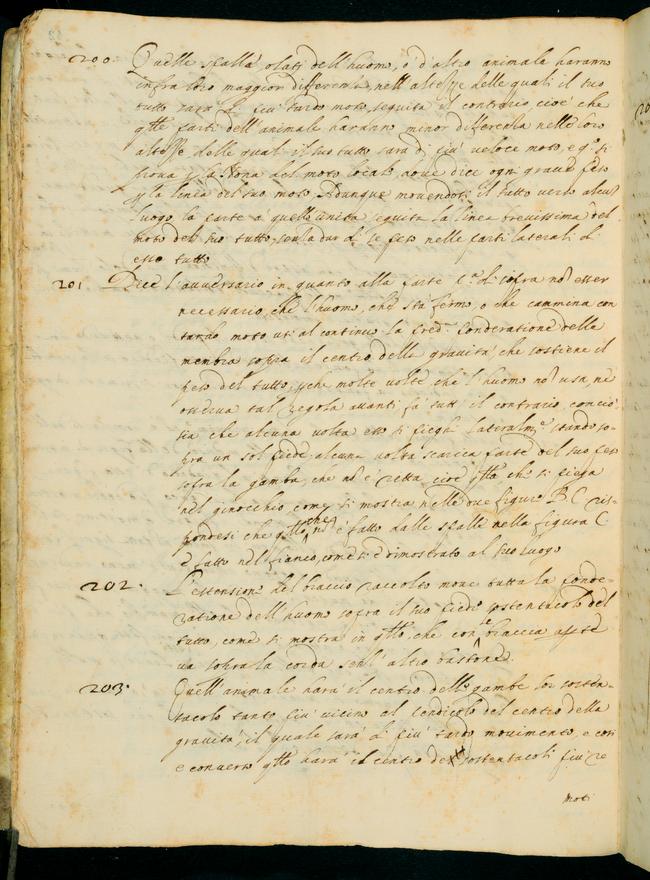 200. Quelle spalle, o lati dell'huomo, ò d'altro animale haranno
infra loro maggior differenza, nell'altezze delle quali il suo
tutto sarà di più tardo moto, seguita il contrario, cioè che
qlle parti dell'animale haranno minor differenza nelle loro
altezze, delle quali il suo tutto sarà di più veloce moto, e qo si
prova p la nona del moto locale, dove dice ogni grave pesa
p la linea del suo moto. Adunque movendosi il tutto verso alcun
luogo, la parte a quello unita seguita la linea brevissima del
moto del suo tutto, senza dar di se peso nelle parti laterali d'
esso tutto
201 Dice l'avversario in quanto alla parte pa di sopra no esser
necessario, che l'huomo, che stà fermo, o che cammina con
tardo moto usi al continuo la pred. ponderatione delle
membra sopra il centro della gravità, che sostiene il
peso del tutto, pche molte volte che l'huomo no usa, ne
osserva tal regola avanti fà tutt' il contrario, concio
sia che alcuna volta esso si pieghi lateralmte stando so-
pra un sol piede, alcuna volta scarica parte del suo peso
sopra la gamba, che no è retta cioè qlla che si piega
nel ginocchio come si mostra nelle due figure B. C. ris-
pondesi che qllo, che no è fatto dalle spalle nella figura C.
è fatto nel fianco, come si è dimostrato al suo luogo
202. L'estensione del braccio raccolto move tutta la ponde-
ratione dell'huomo sopra il suo piede sostentacolo del
tutto, come si mostra in qllo, che con le braccia apte
va sopra la corda senz'altro bastone.
203. Quell'animale harà il centro delle gambe suo sosten-
tacolo tanto più vicino al pendicolo del centro della
gravità, il quale sarà di più tardo movimento, e così
e converso qllo harà il centro de sostentacoli più re
moti